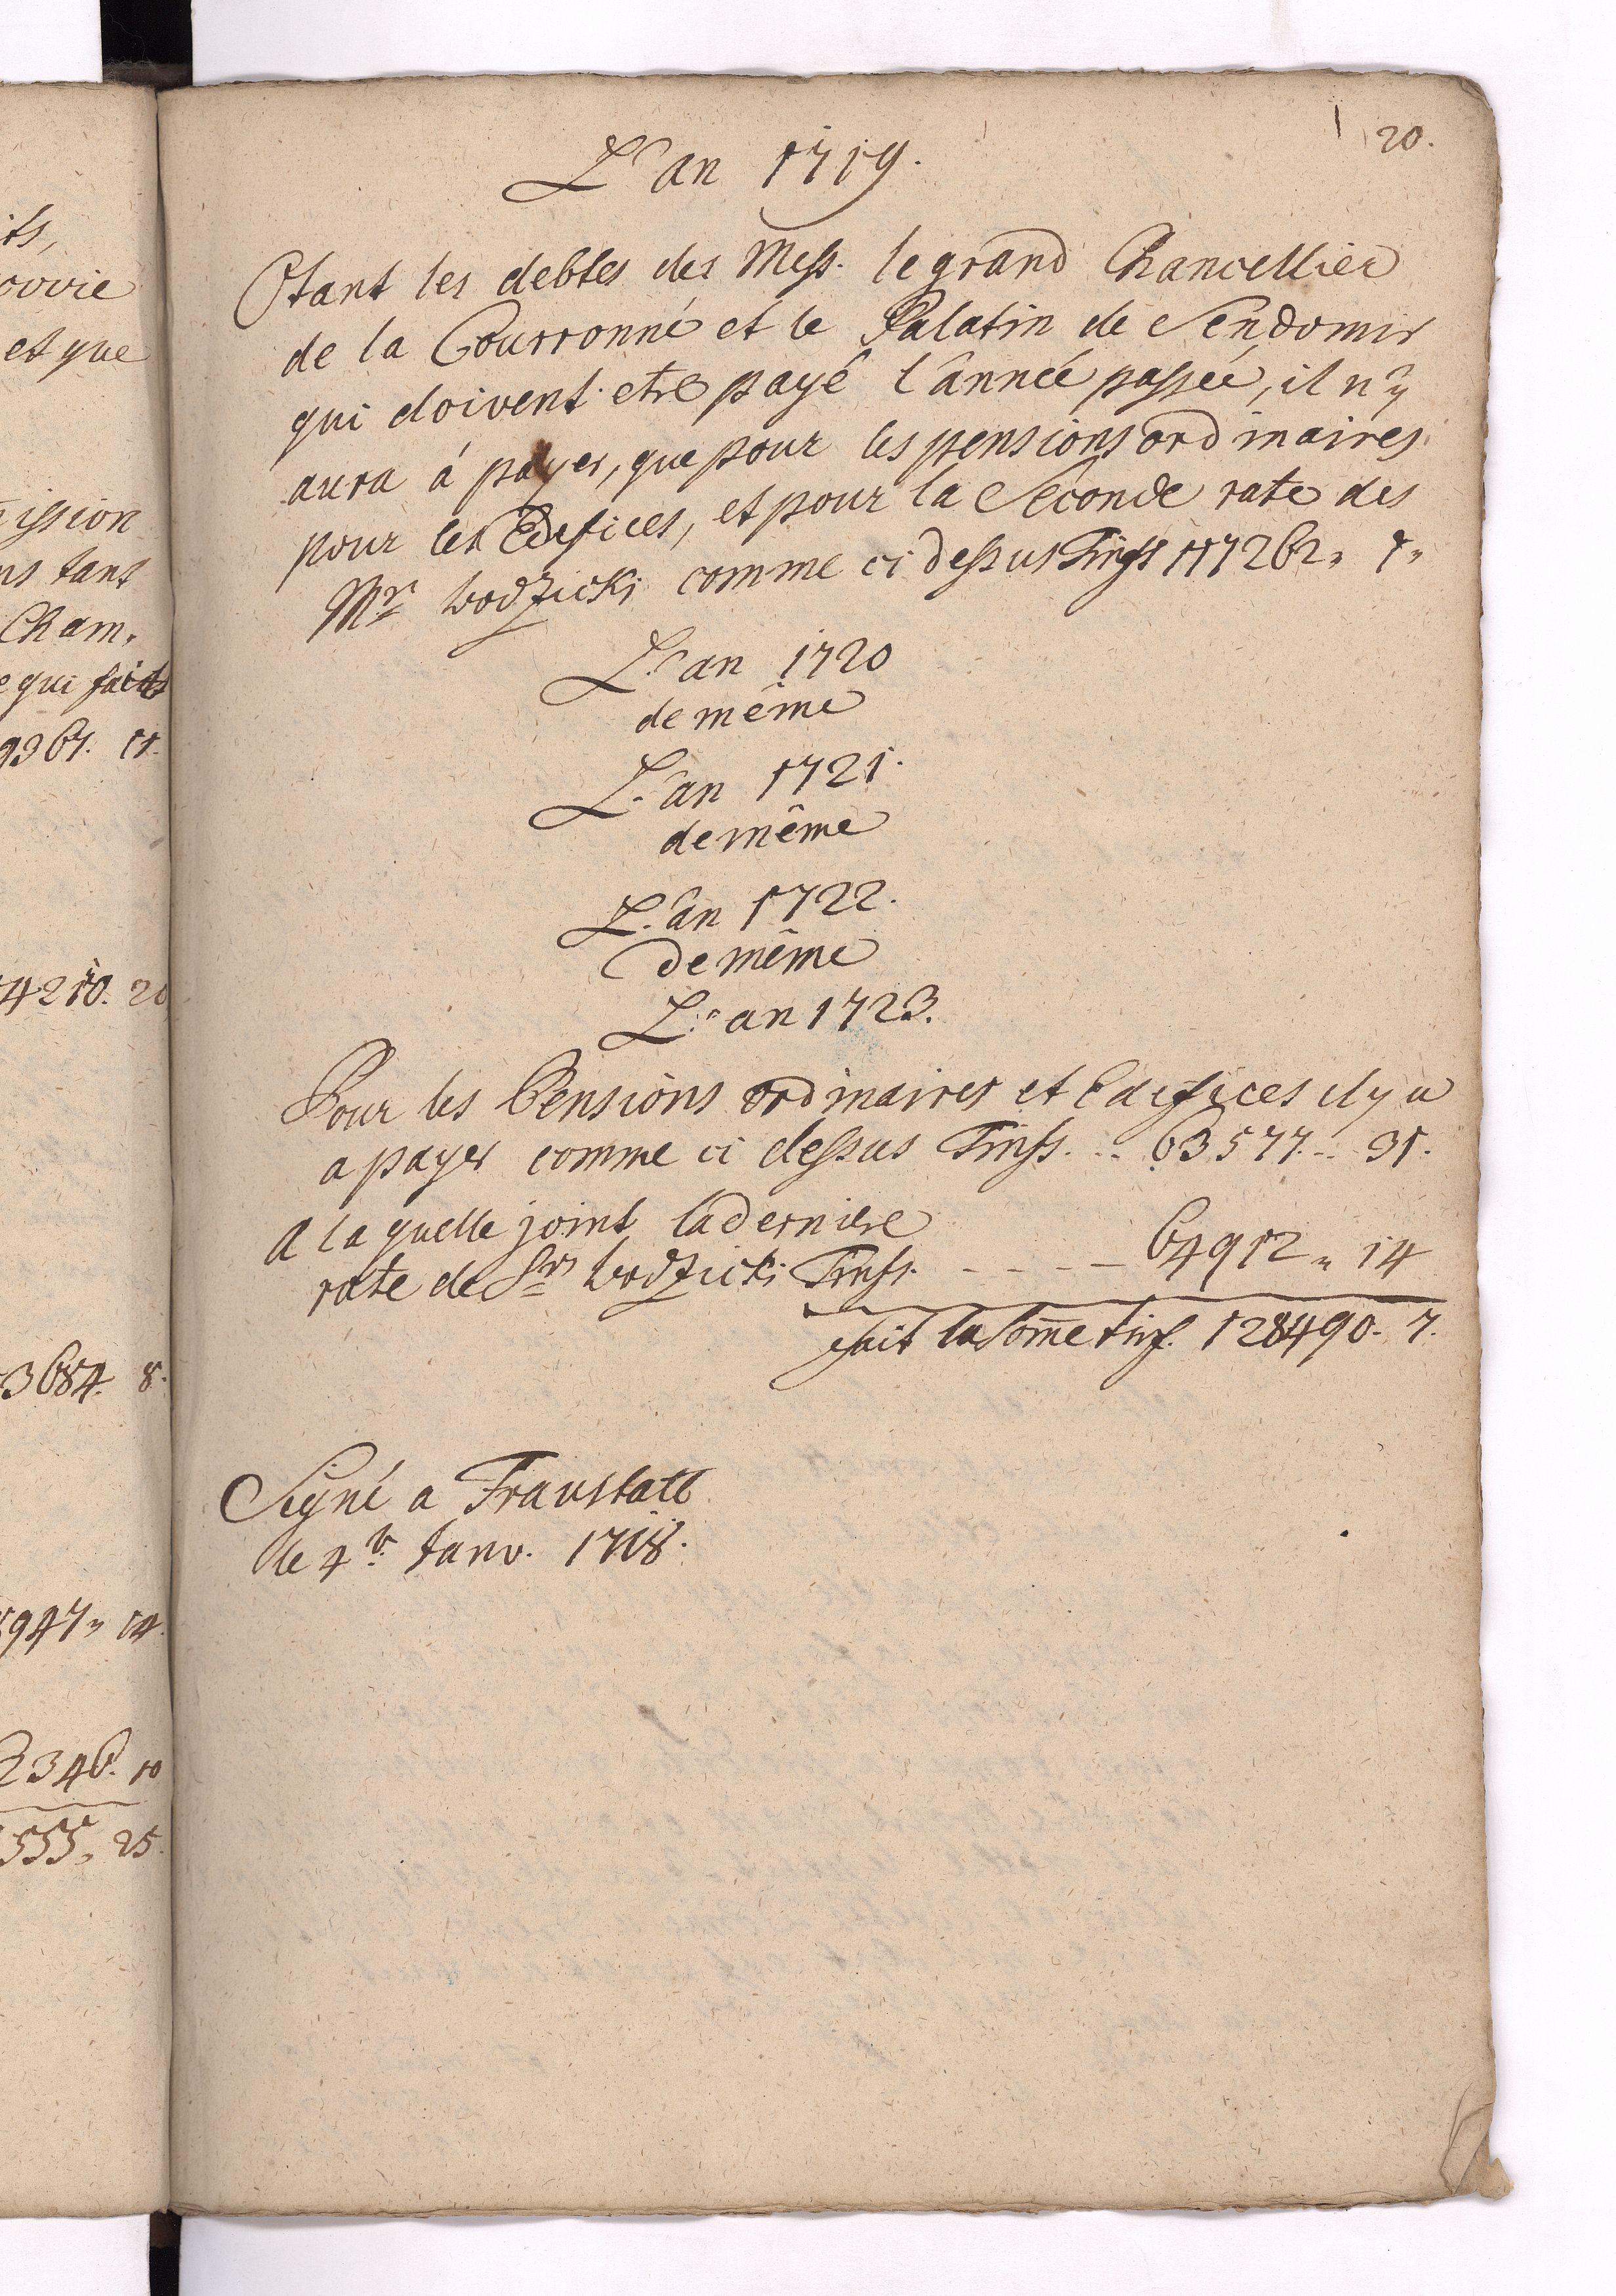 its,
oovie
et que
ission
ns tant
Cham,
e qui faits
9367. 11.
4210. 20
3684. 8.
947„ 14.
2346. 10
555„ 25.
20.
L'an 1719.
Otant les debtes des Mess. le grand Chancellier
de la Courronné et le Palatin de Sendomir
qui doivent etre payé l'année passée, il n'y
aura á payer, que pour les pensions ordinaires
pour les Edifices, et pour la Seconde rate des
Mrs Wodzicki comme ci dessus Tinss 117262„ 7„
L'an 1720
de même
L'an 1721.
de même
L'an 1722.
de même
L'an 1723.
Pour les Pensions ordinaires et Edifices il y a
a payer comme ci dessus Tinss. .. 63577. .. 31.
A la quelle joint la derniere
rate de Srs Wodzicki Tinss. - - - - 64912„ 14
fait la Some tinf. 128490. 7.
Signé a Fraustatt
le 4t. Janv. 1718.